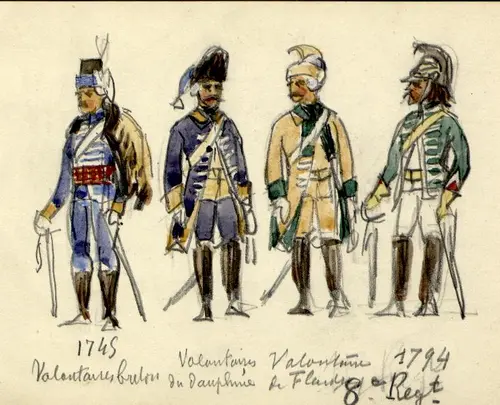 1745
Volontaires breton
Volontaires
du Dauphiné
Volontaire
de Flandre
1794
8e Regt